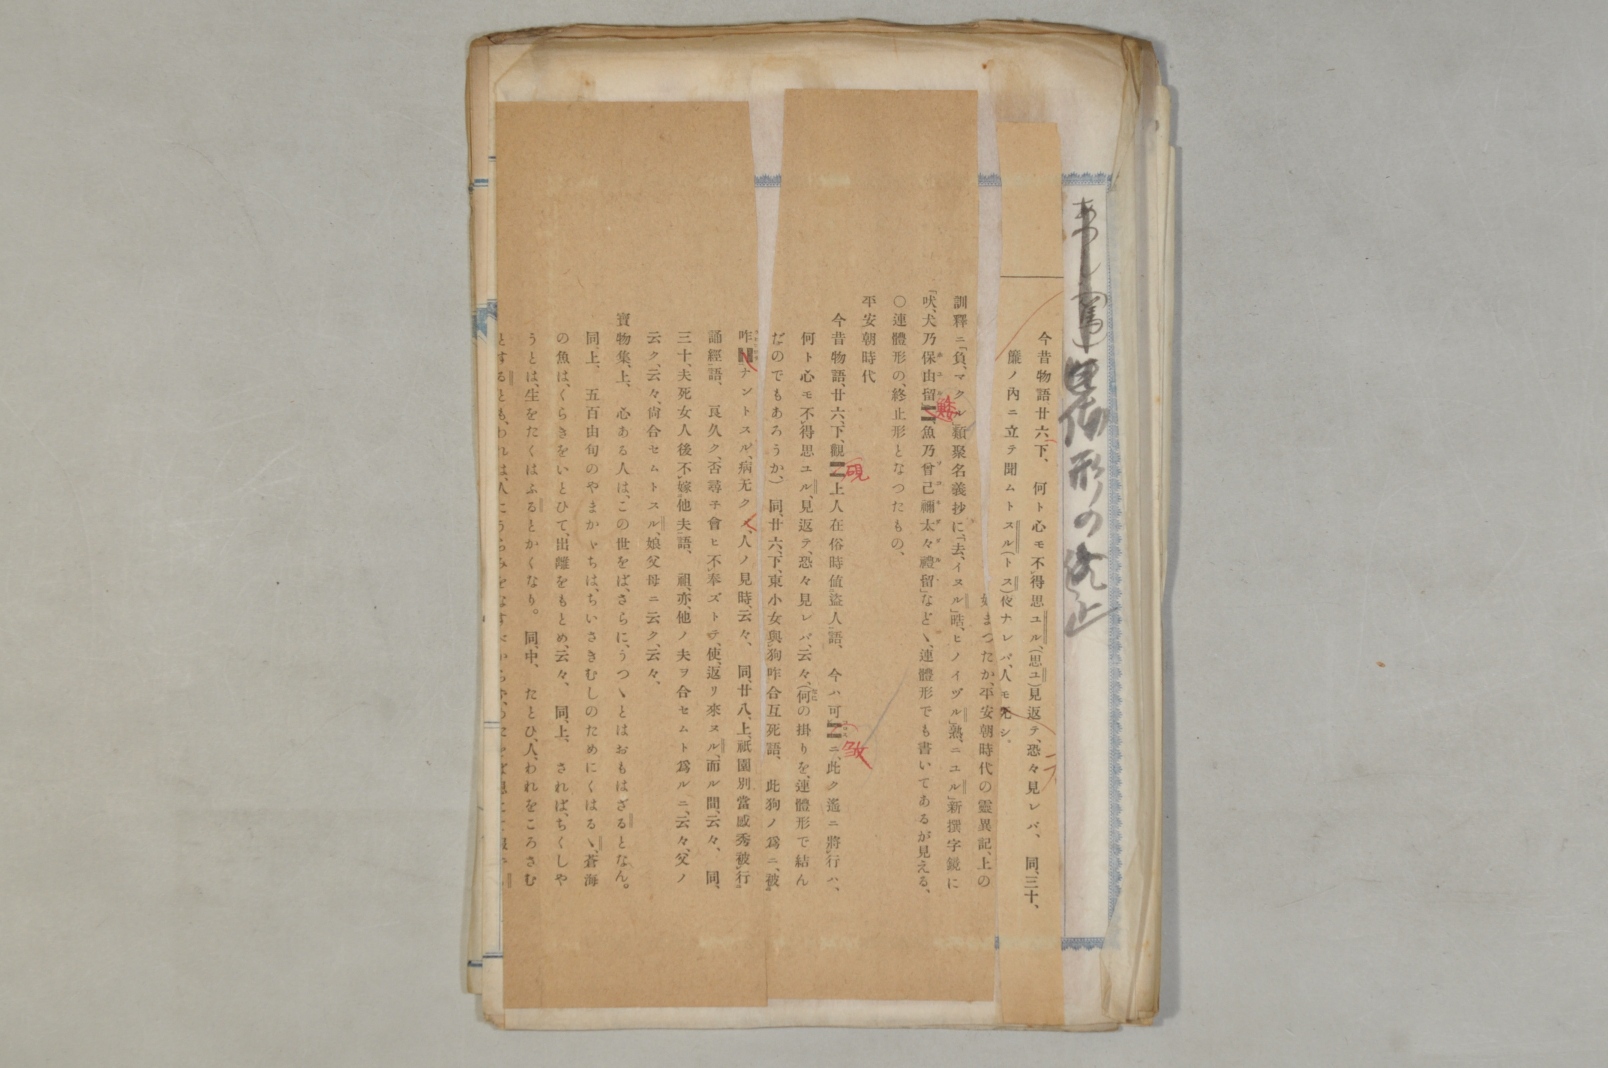 形の
今昔物語廿六、下、 何ト心モ不得思ユル、(思ユ)見返テ、恐々見レバ、 同、三十、
簾ノ內ニ立テ聞ムトスル(トス)程ナレバ、人モ无シ。
まつたか、平安朝時代の靈異記、上の
訓釋ニ「負、マクル」類聚名義抄に、「去、イヌル」晧、ヒノイヅル」熟、ニユル」新撰字鏡に
「吠、犬乃保由留〓魚乃曾己禰太々禮留」など、連體形でも書いてあるが見える、
〇連體形の、終止形となつたもの、
平安朝時代
今昔物語、廿六、下、觀〓上人在俗時値盜人語、 今ハ可〓ニ、此ク遙ニ將行ハ、
硯
何ト心モ不得思ユル、見返テ、恐々見レバ、云々、(何の掛りを、連體形で結ん
だのでもあろうか、) 同、廿六、下、東小女與狗咋合互死語、 此狗ノ爲ニ、被
咋〓ナントスル、病无クハ、人ノ見時、云々、 同、廿八、上、祇園別當感秀被行
誦經語、 良久ク、否尋子會ヒ不奉ズトテ、使、返リ來ヌル、而ル間、云々、 同、
三十、夫死女人後不嫁他夫語、 祖、亦、他ノ夫ヲ合セムト爲ルニ、云々、父ノ
云ク、云々、尙合セムトスル、娘父母ニ云ク、云々、
寶物集、上、 心ある人は、この世をば、さらに、うつゝとはおもはざるとなん。
同上、 五百由旬のやまかゞちは、ちいさきむしのためにくはるゝ、蒼海
の魚は、くらきをいとひて、出離をもとめ、云々、 同、上、 されば、ちくしや
うとは、生をたくはふるとかくなり。 同、中、 たとひ、人、われをころさむ
とするとも、われは、人にうらみをなす